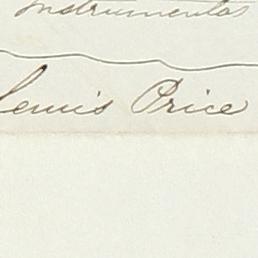 Instrumentos
Lewis Price